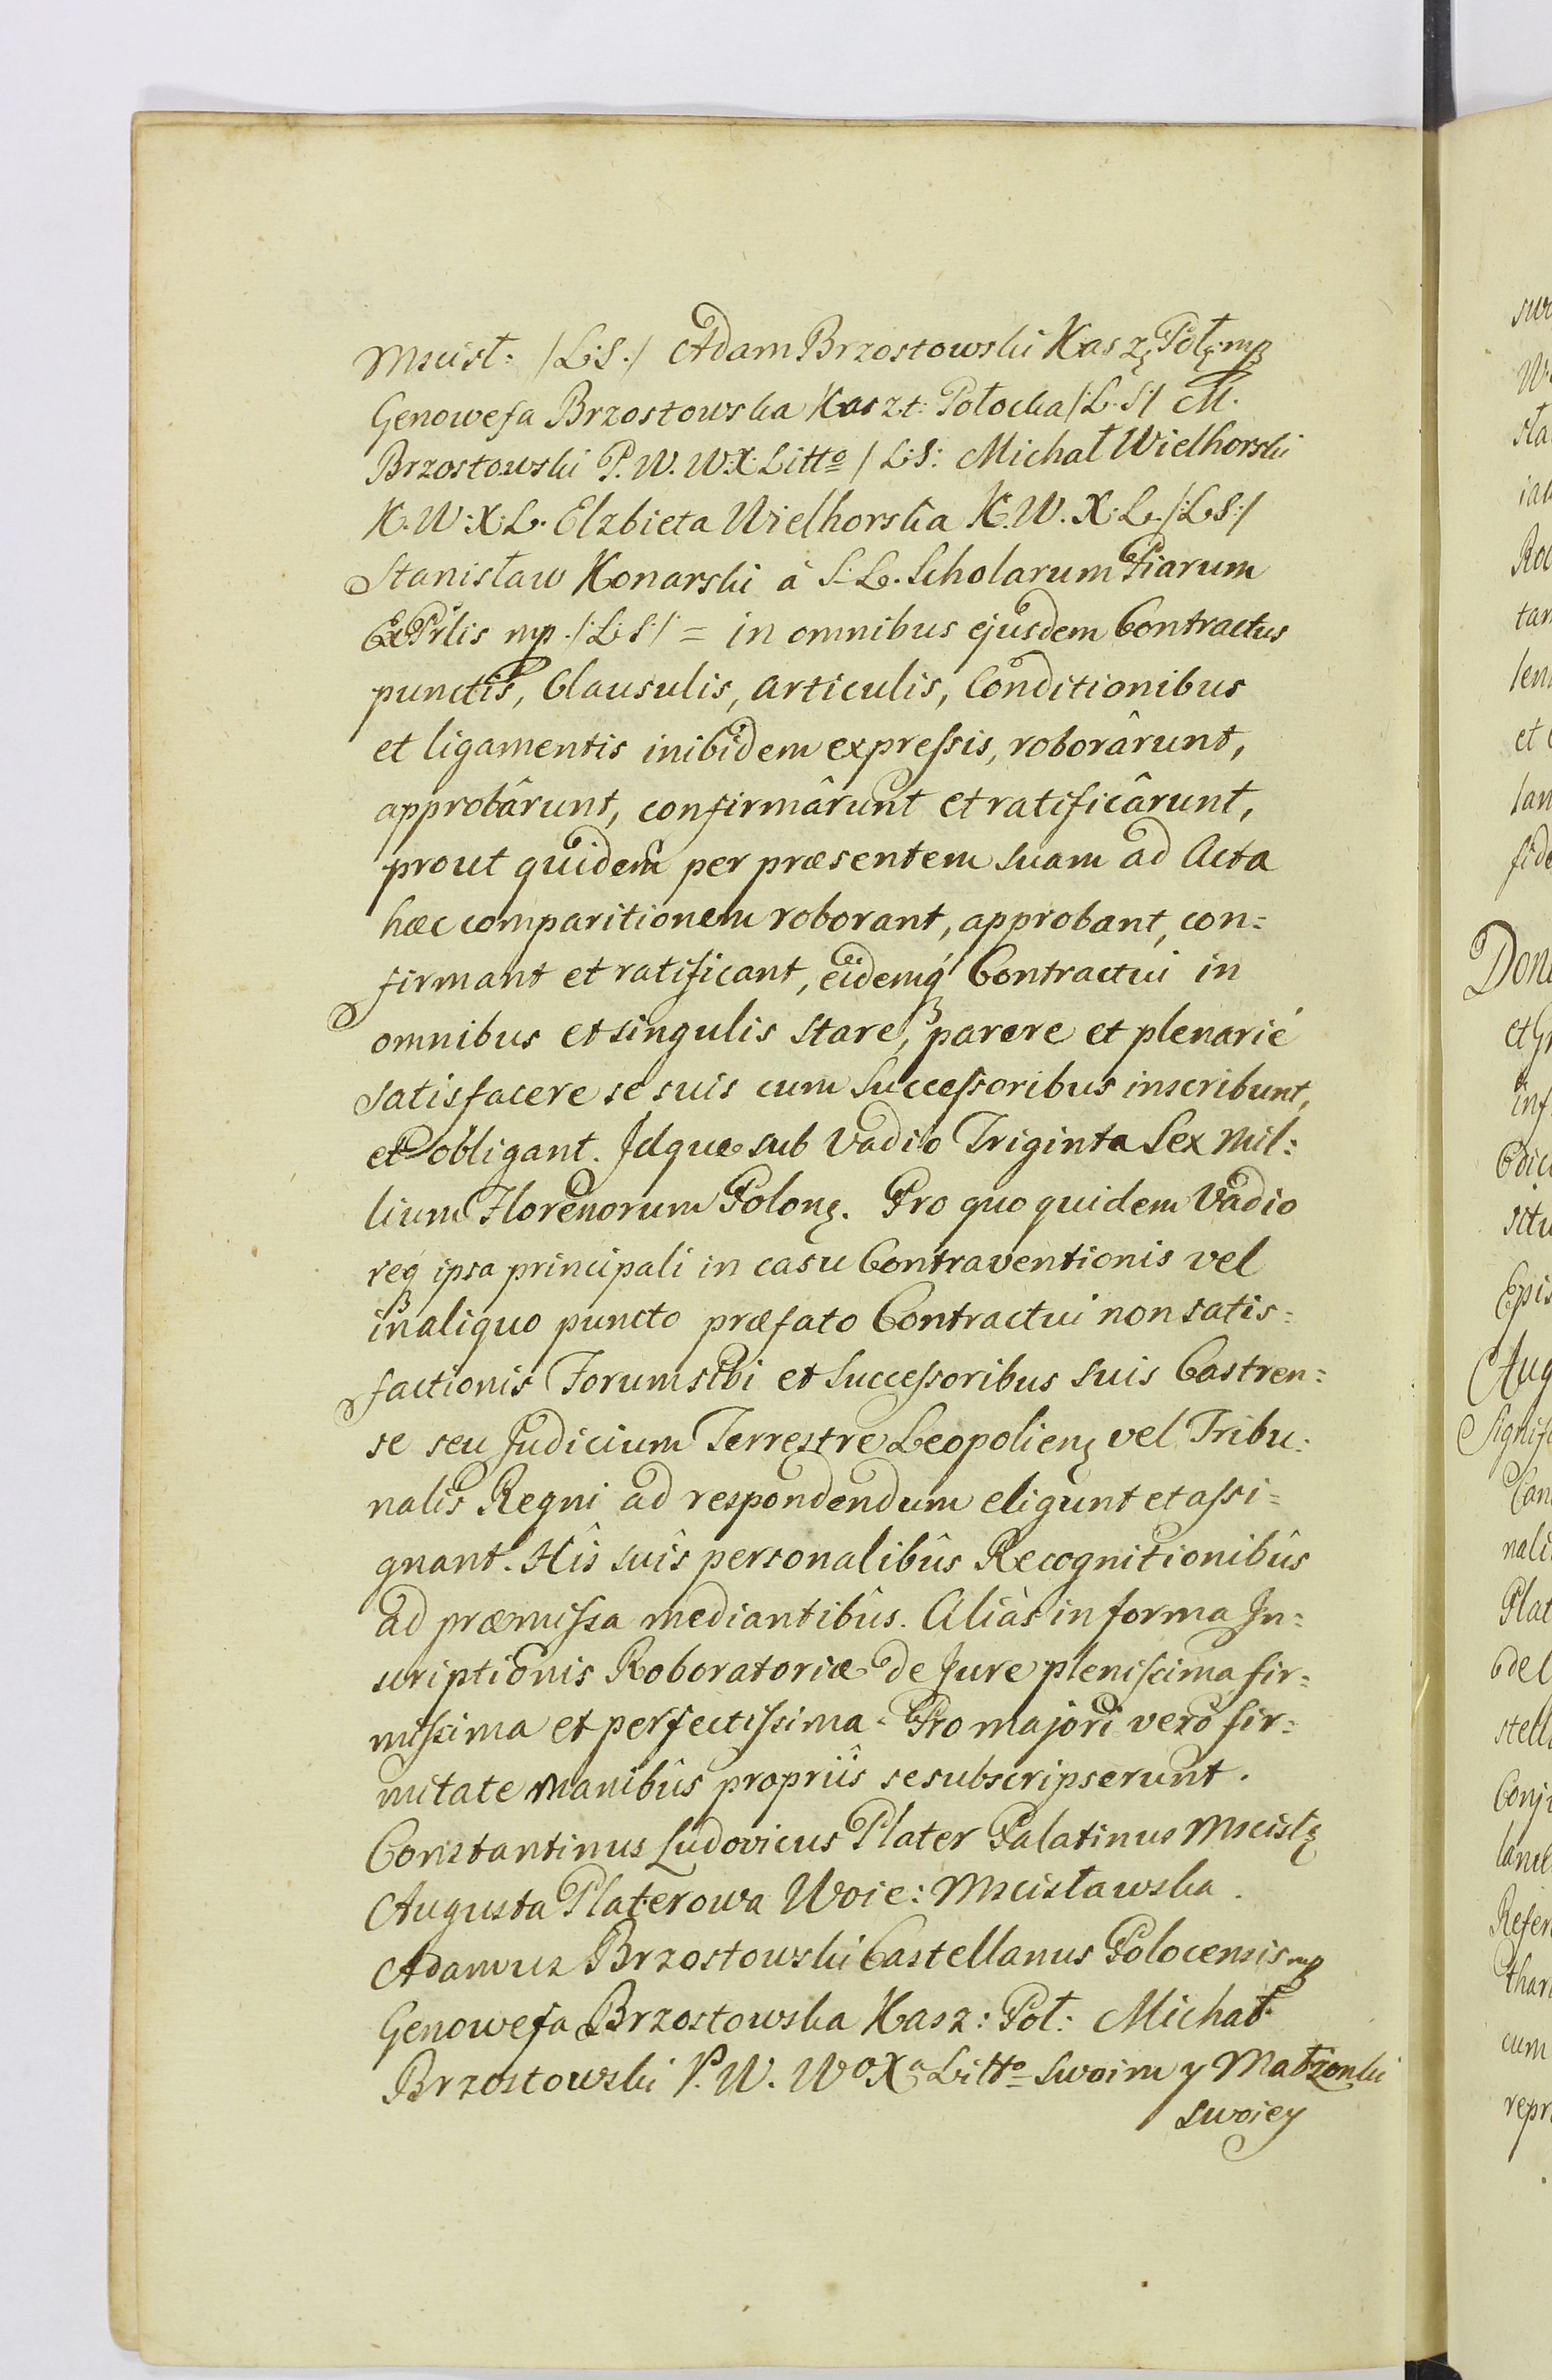 Mscisł: /L:S:/ Adam Brzostowski Kasz: Poł: mp
Genowefa Brzostowska Kaszt: Połocka /L:S:/ M.
Brzostowski P. W. W:X: Litto / L:S: Michał Wielhorski
K. W: X: L. Elzbieta Wielhorska K. W. X: L. /:L:S:/
Stanisław Konarski à S: L. Scholarum Piarum
ExPrlis mp. /:L:S:/ = in omnibus ejusdem Contractus
punctis, Clausulis, articulis, Conditionibus
et ligamentis inibidem expressis, roborârunt,
approbârunt, confirmârunt et ratificârunt,
prout quidem per præsentem suam ad Acta
hæc comparitionem roborant, approbant, con=
firmant et ratificant, eidemq Contractui in
omnibus et singulis stare, parere et plenarié
satisfacere se suis cum Successoribus inscribunt,
et obligant. Idque sub Vadio Triginta Sex Mil=
lium Florenorum Polon: Pro quo quidem Vadio
req ipsa principali in casu Contraventionis vel
in aliquo puncto præfato Contractui non satis=
factionis Forum sibi et Successoribus suis Castren=
se seu Judicium Terrestre Leopolien: vel Tribu=
nalis Regni ad respondendum eligunt et assi=
gnant. Hîs suîs personalibûs Recognitionibûs
ad præmissa mediantibûs. Aliàs in forma In=
scriptionis Roboratoriæ de Jure plenissima fir=
missima et perfectissima. Pro majori verò fir=
mitate Manibûs propriîs se subscripserunt.
Constantinus Ludovicus Plater Palatinus Mscisł:
Augusta Platerowa Woie: Mscisławska.
Adamus Brzostowski Castellanus Polocensis mp
Genowefa Brzostowska Kasz: Poł: Michał
Brzostowski P. W. WoXa Litto Swoim y Małżonki
swoiey